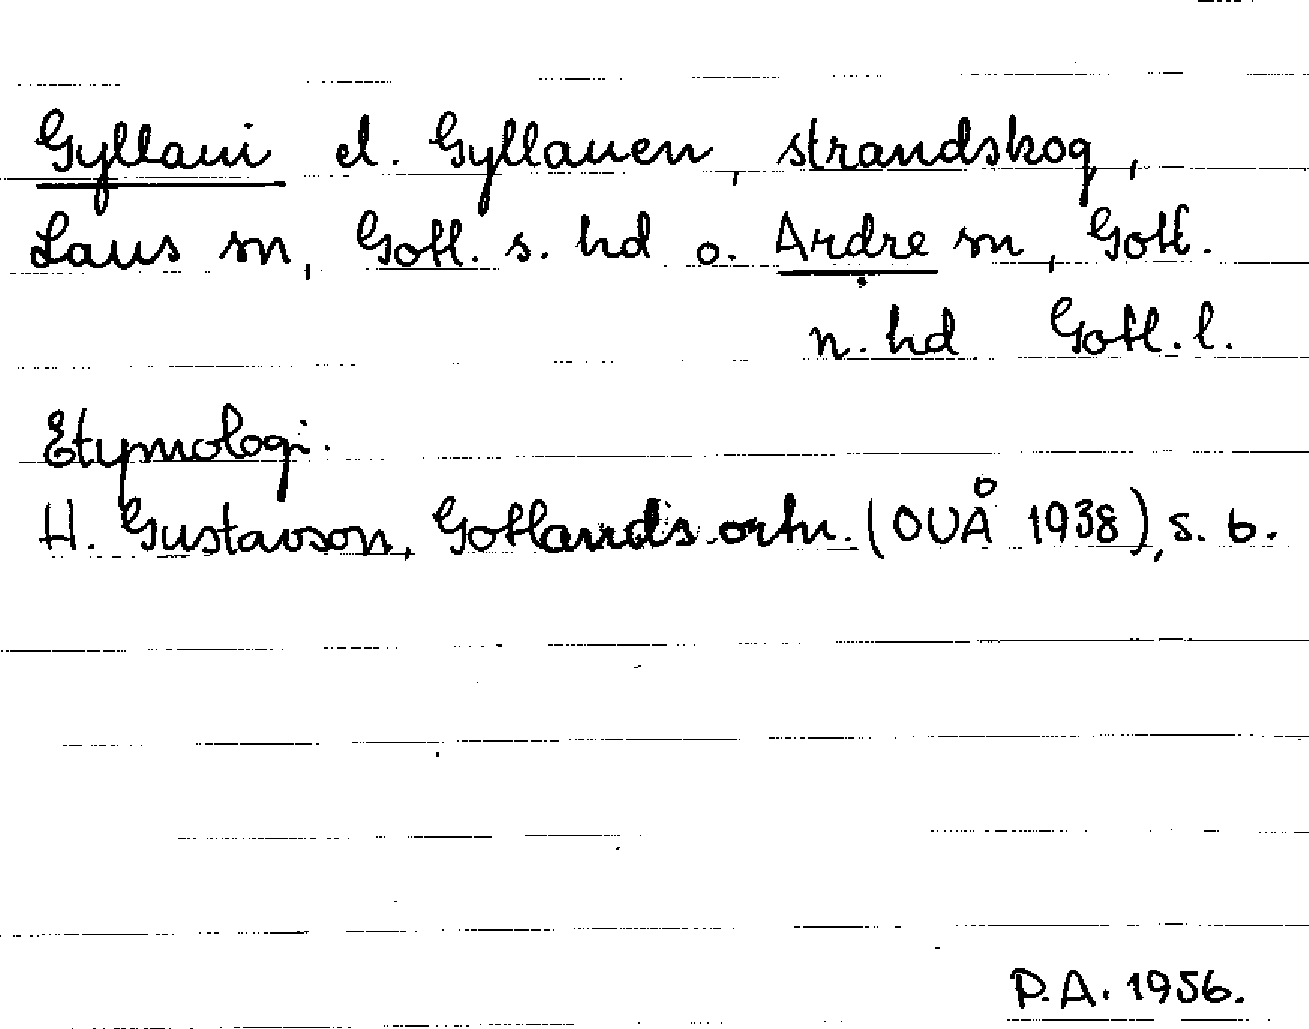 Gyllaui el. Gyllauen, strandskog,
Laus sn, Gotl. s. hd o. Ardre sn, Gotl.
n. hd Gotl. l.
Etymologi.
H. Gustavson, Gotlands ortn. (OUÅ 1938), s. 6.
P.A. 1956.